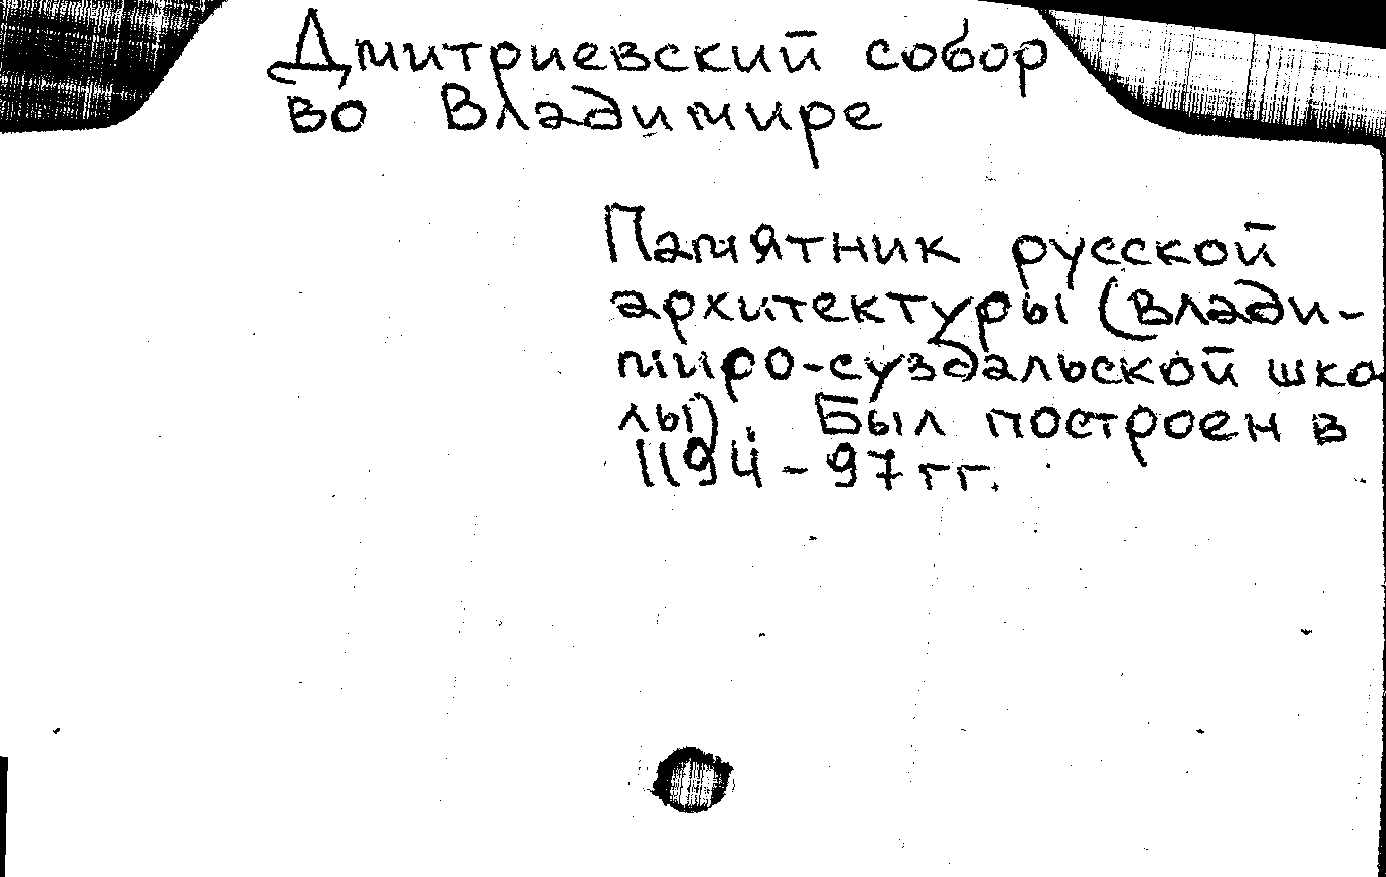 Дмитриевский собор
во Владимире
Памятник русской
архитектуры (влади-
миро-суздальской шко
лы). Был построен в
1194-97 гг.